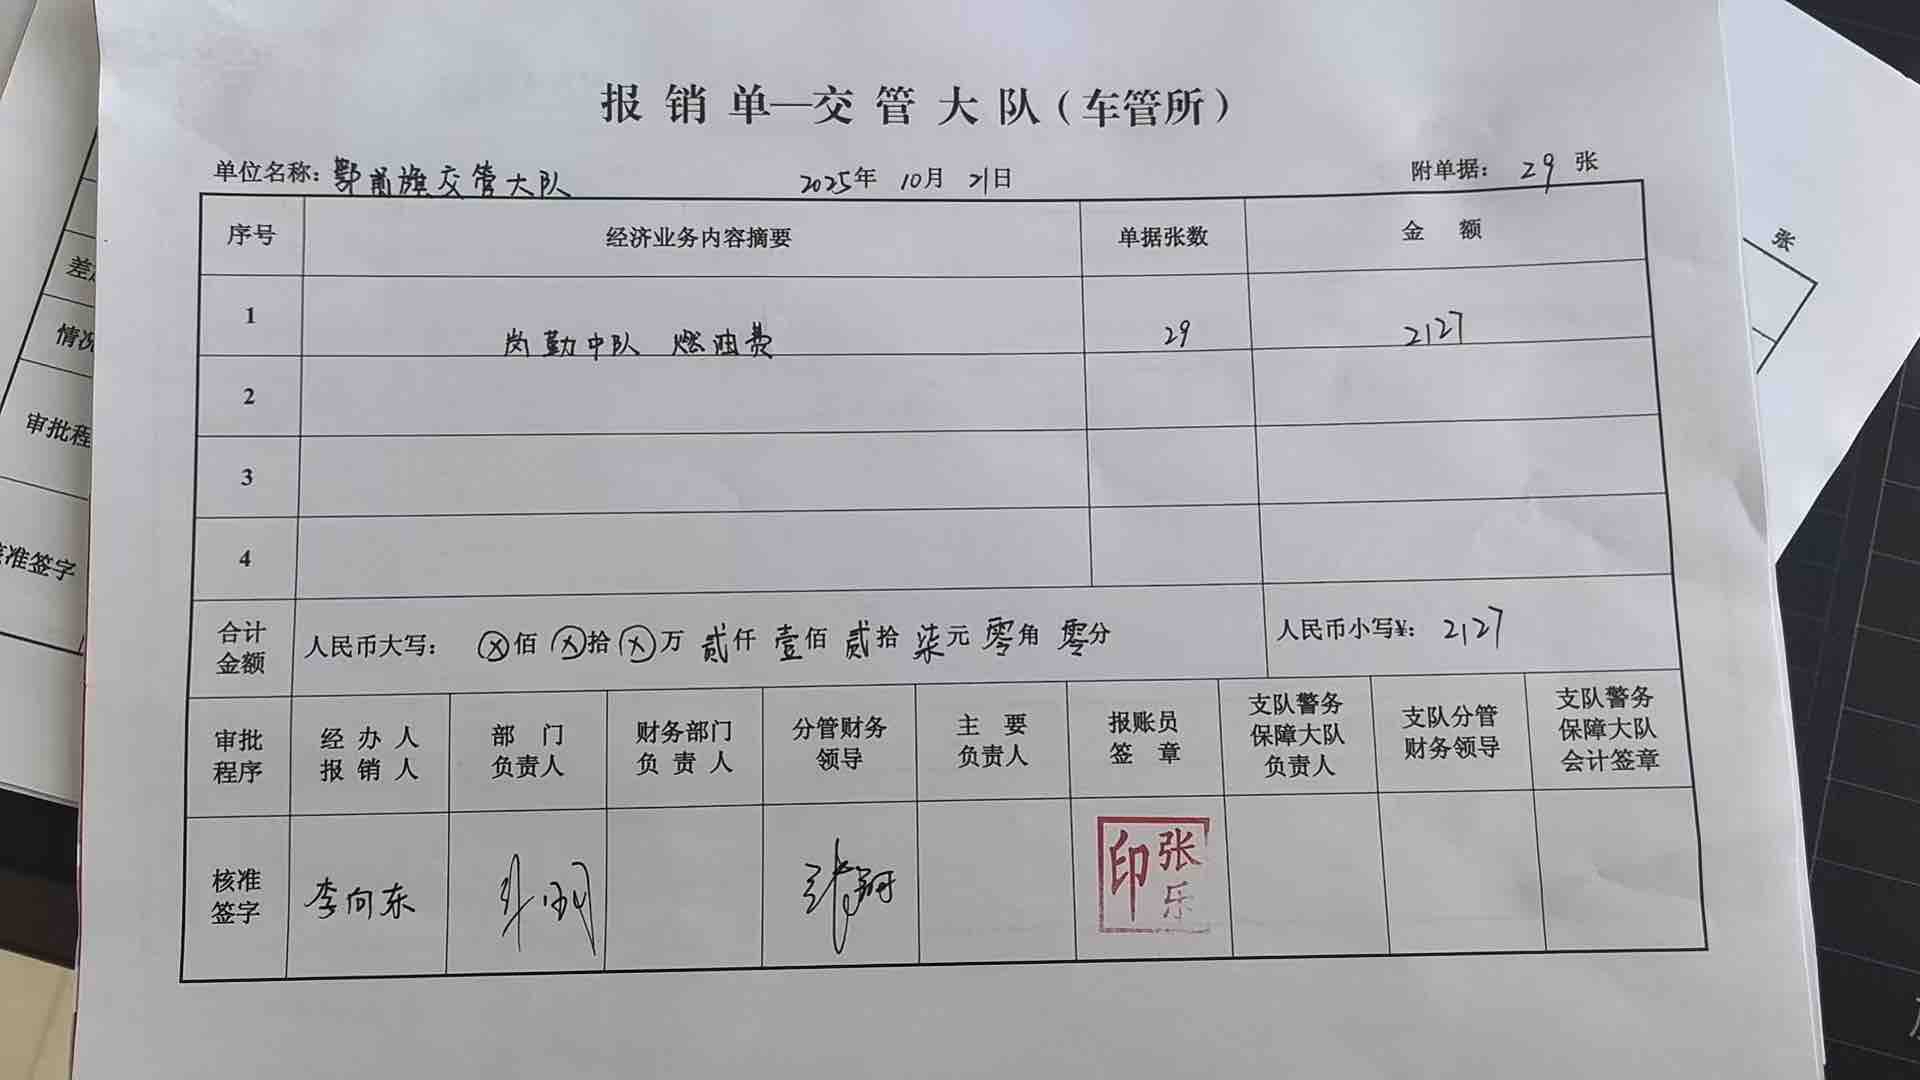 报销单—交管大队（车管所）
单位名称：鄂前旗交管大队 2025年 10月 21日 附单据： 29 张
序号 经济业务内容摘要 单据张数 金 额
1 岗勤中队 燃油费 29 2127
2
3
4
合计金额 人民币大写： ⊗佰 ⊗拾 ⊗万 贰仟 壹佰 贰拾 柒元 零角 零分 人民币小写¥： 2127
审批程序 经办人报销人 部门负责人 财务部门负责人 分管财务领导 主要负责人 报账员签章 支队警务保障大队负责人 支队分管财务领导 支队警务保障大队会计签章
核准签字 李向东 张乐印
张
情况
审批程
准签字